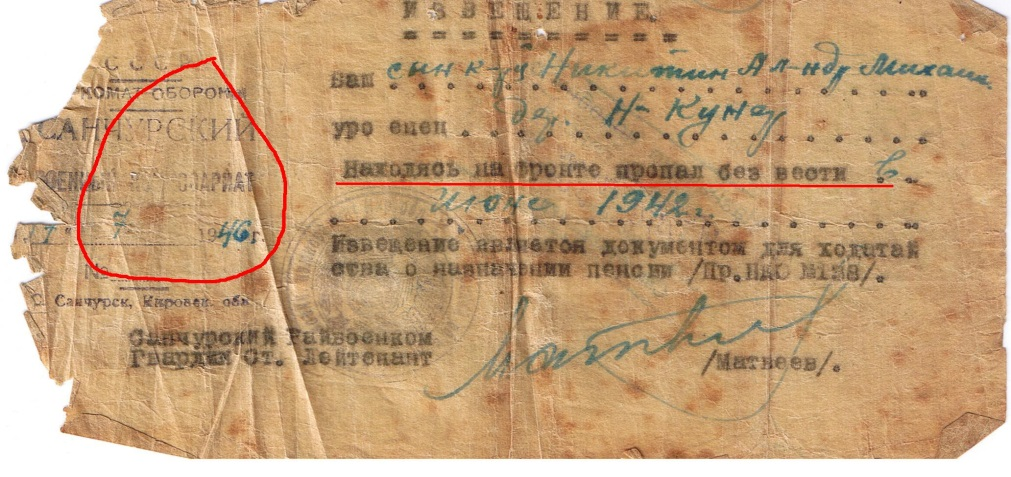 ИЗВЕЩЕНИЕ.
СССР
КОМАТ ОБОРОНЫ
САНЧУРСКИЙ
ВОЕННЫЙ КОМИССАРИАТ
7 1946 г.
№
С. Санчурск, Кировск. обл.
Ваш сын к-ц Никитин Ал-ндр Михаил
уро енец дер. Н-Кунер
Находясь на фронте пропал без вести в
июне 1942 г.
Извещение является документом для ходатай
ства о назначении пенсии /Пр.НКО №138/.
Санчурский Райвоенком
Гвардии Ст. Лейтенант
/Матвеев/.